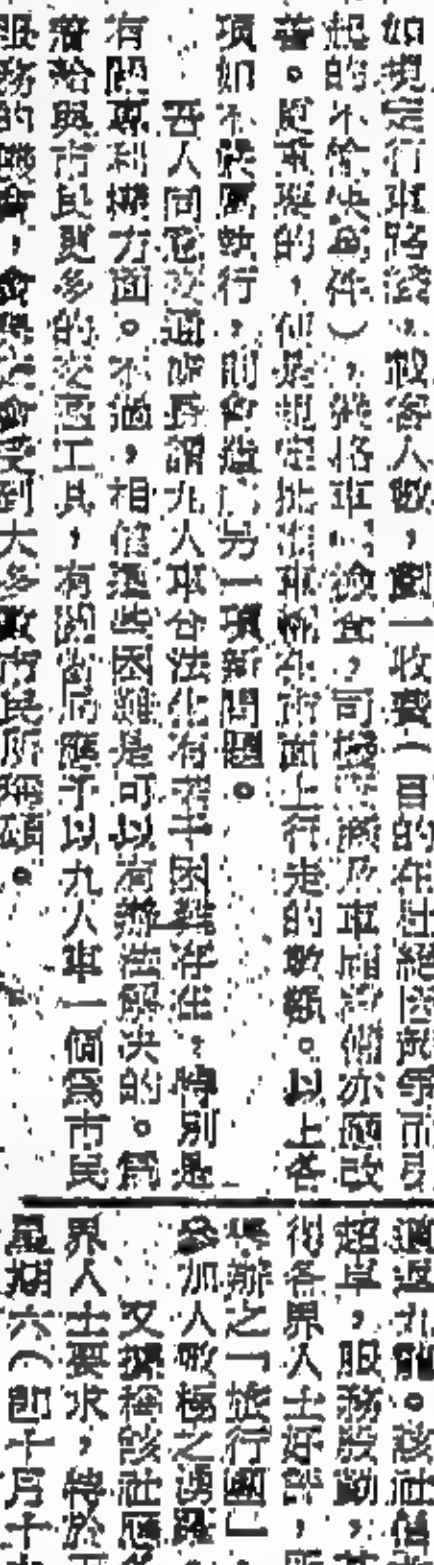 如規定行車路綫，載客人數，劃一收費（目的在杜絕因競爭而引
起的不愉快事件），嚴格車輛檢查，司機及車廂設備亦應改
善。更重要的，便是規定批准車輛在市面上行走的數額。以上各
項如不嚴厲執行，則會造成另一項新問題。
吾人同意交通部長謂九人車合法化有若干困難存在，特別是
有關專利權方面。不過，相信這些困難是可以有辦法解決的。爲
着給與市民更多的交通工具，有關當局應予以九人車一個爲市民
服務的機會，會受到大多數市民所稱頌。
超卓，服務殷勤，
得各界人士好評，
舉辦之「旅行團」
參加人數極之踴躍。
又據稱該社應各
界人士要求，特於
星期六（即十月十